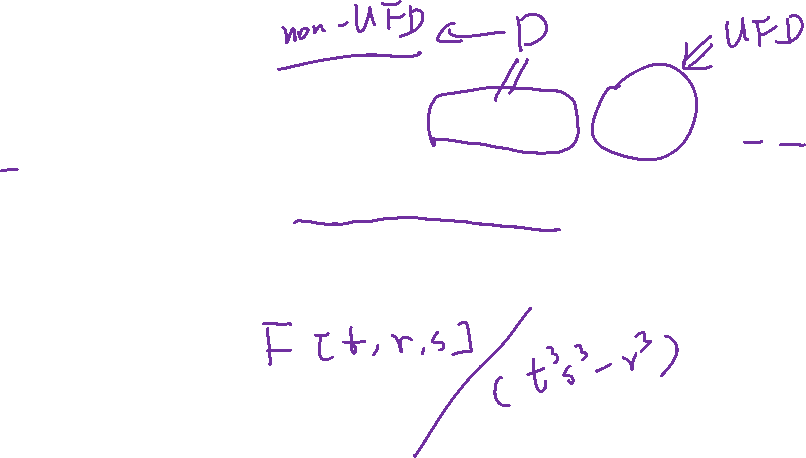 non-UFD ← D UFD
F[t,r,s]/(t³s³-r³)